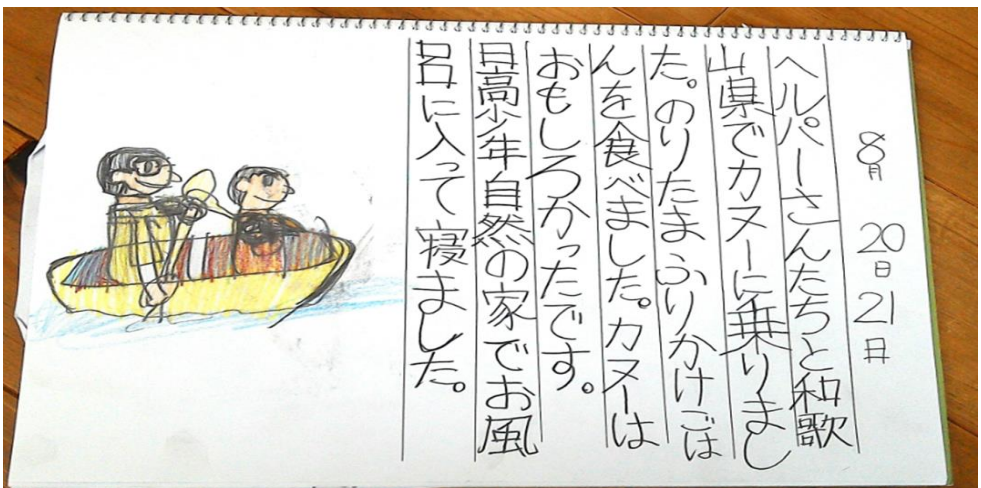 8月 20日 21日
ヘルパーさんたちと和歌
山県でカヌーに乗りまし
た。のりたまふりかけごは
んを食べました。カヌーは
おもしろかったです。
日高少年自然の家でお風
呂に入って寝ました。